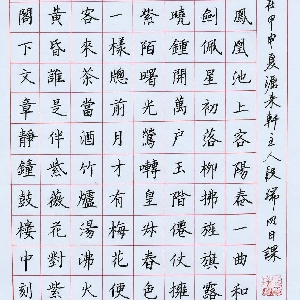 甲申夏東軒主人段日課
鳳凰池上客陽春一曲和
劍佩星初落柳拂旌旗露
曉鍾開萬戶玉階僊仗擁
紫陌曙光鶯囀皇州春色
一樣牕前月才有梅花便
客來茶當酒竹爐湯沸火
黃昏誰是伴紫薇花對紫
閣下文章靜鐘鼓樓中刻